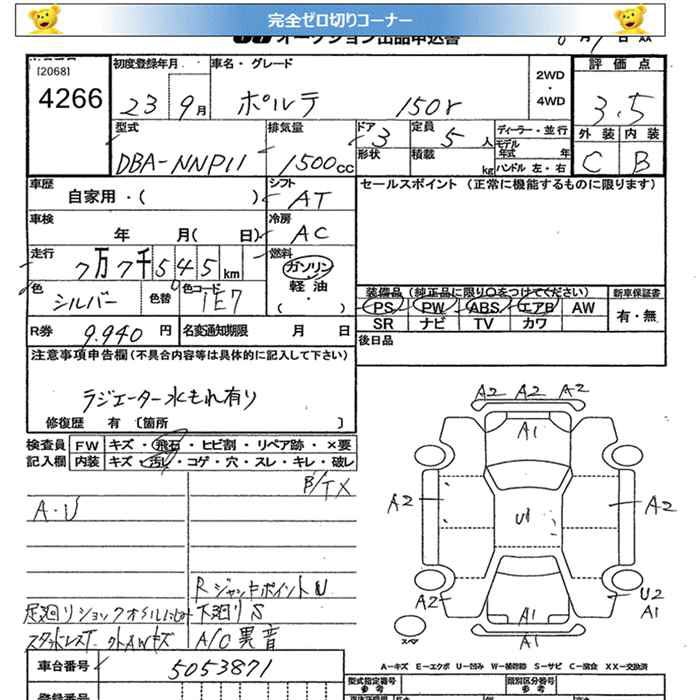 完全ゼロ切りコーナー
オークション出品申込書
[2068]
4266
初度登録年月 車名・グレード 2WD・4WD 評価点
23 9月 ポルテ 150r 3.5
外装 内装
C B
型式 排気量 ドア 定員 ディーラー・並行
DBA-NNP11 1500cc 3 5人
形状 積載 kg モデル年式 年
ハンドル 左・右
車歴 シフト セールスポイント (正常に機能するものに限ります)
自家用・( ) AT
車検 冷房
年 月( 日) AC
走行 燃料
7万7千545km ガソリン
軽油
( ・ )
色 シルバー 色替 色コード 1E7
装備品 (純正品に限り○をつけてください) 新車保証書
PS PW ABS エアB AW 有・無
SR ナビ TV カワ
R券 9.940円 名変通知期限 月 日
後日品
注意事項申告欄(不具合内容等は具体的に記入して下さい)
ラジエーター水もれ有り
修復歴 有 〔箇所 〕
検査員 FW キズ・飛石・ヒビ割・リペア跡・×要
記入欄 内装 キズ・汚レ・コゲ・穴・スレ・キレ・破レ
A・U
RジャッキポイントU
下廻りS
A/C異音
A2 A2 A2
A1
A2 U1 A2
A2 U2
A1
A1
A1
A-キズ E-エクボ U-凹み W-補修跡 S-サビ C-腐食 XX-交換済
車台番号 5053871
登録番号
型式指定番号 参考 類別区分番号 参考